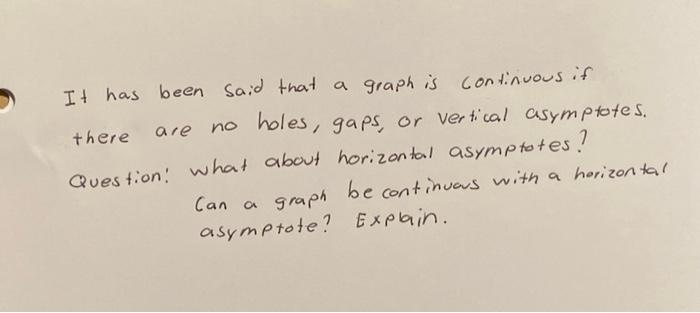 It has been said that a graph is continuous if
there are no holes, gaps, or vertical asymptotes.
Question: what about horizontal asymptotes?
Can a graph be continuous with a horizontal
asymptote? Explain.